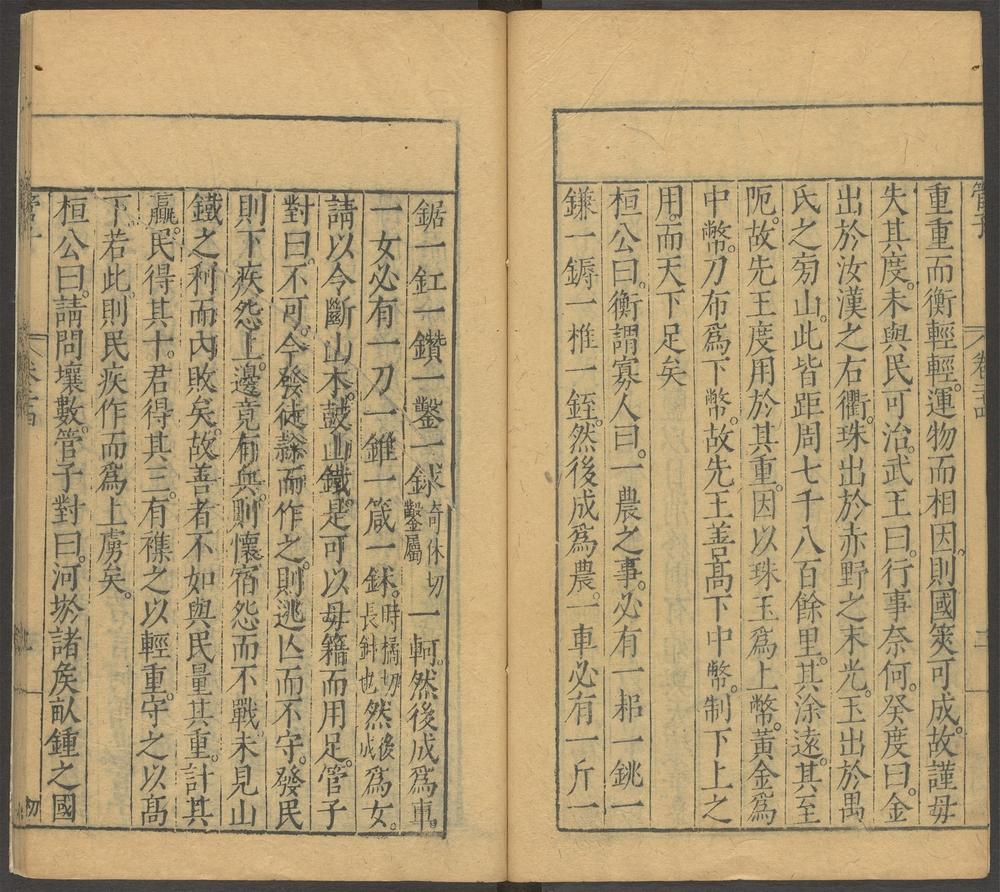 管子
卷二十四
重重而衡輕輕。運物而相因。則國筴可成。故謹毋
失其度。未與民可治。武王曰。行事奈何。癸度曰。金
出於汝漢之右衢。珠出於赤野之末光。玉出於禺
氏之旁山。此皆距周七千八百餘里。其涂遠。其至
阨。故先王度用於其重。因以珠玉爲上幣。黃金爲
中幣。刀布爲下幣。故先王善高下中幣。制下上之
用。而天下足矣
桓公曰。衡謂寡人曰。一農之事。必有一耜一銚一
鎌一鎒一椎一銍。然後成爲農。一車必有一斤一
鋸一釭一鑽一鑿一銶奇休切鑿屬一軻。然後成爲車。
一女必有一刀一錐一箴一鉥。時橘切長針也然後成爲女。
請以令斷山木。鼓山鐵。是可以毋籍而用足。管子
對曰。不可。今發徒隸而作之。則逃亾而不守。發民
則下疾怨上。邊竟有兵。則懷宿怨而不戰。未見山
鐵之利而內敗矣。故善者不如與民量其重。計其
贏。民得其十。君得其三。有襍之以輕重。守之以高
下。若此。則民疾作而爲上虜矣。
桓公曰。請問壤數。管子對曰。河㴩諸矦畝鍾之國